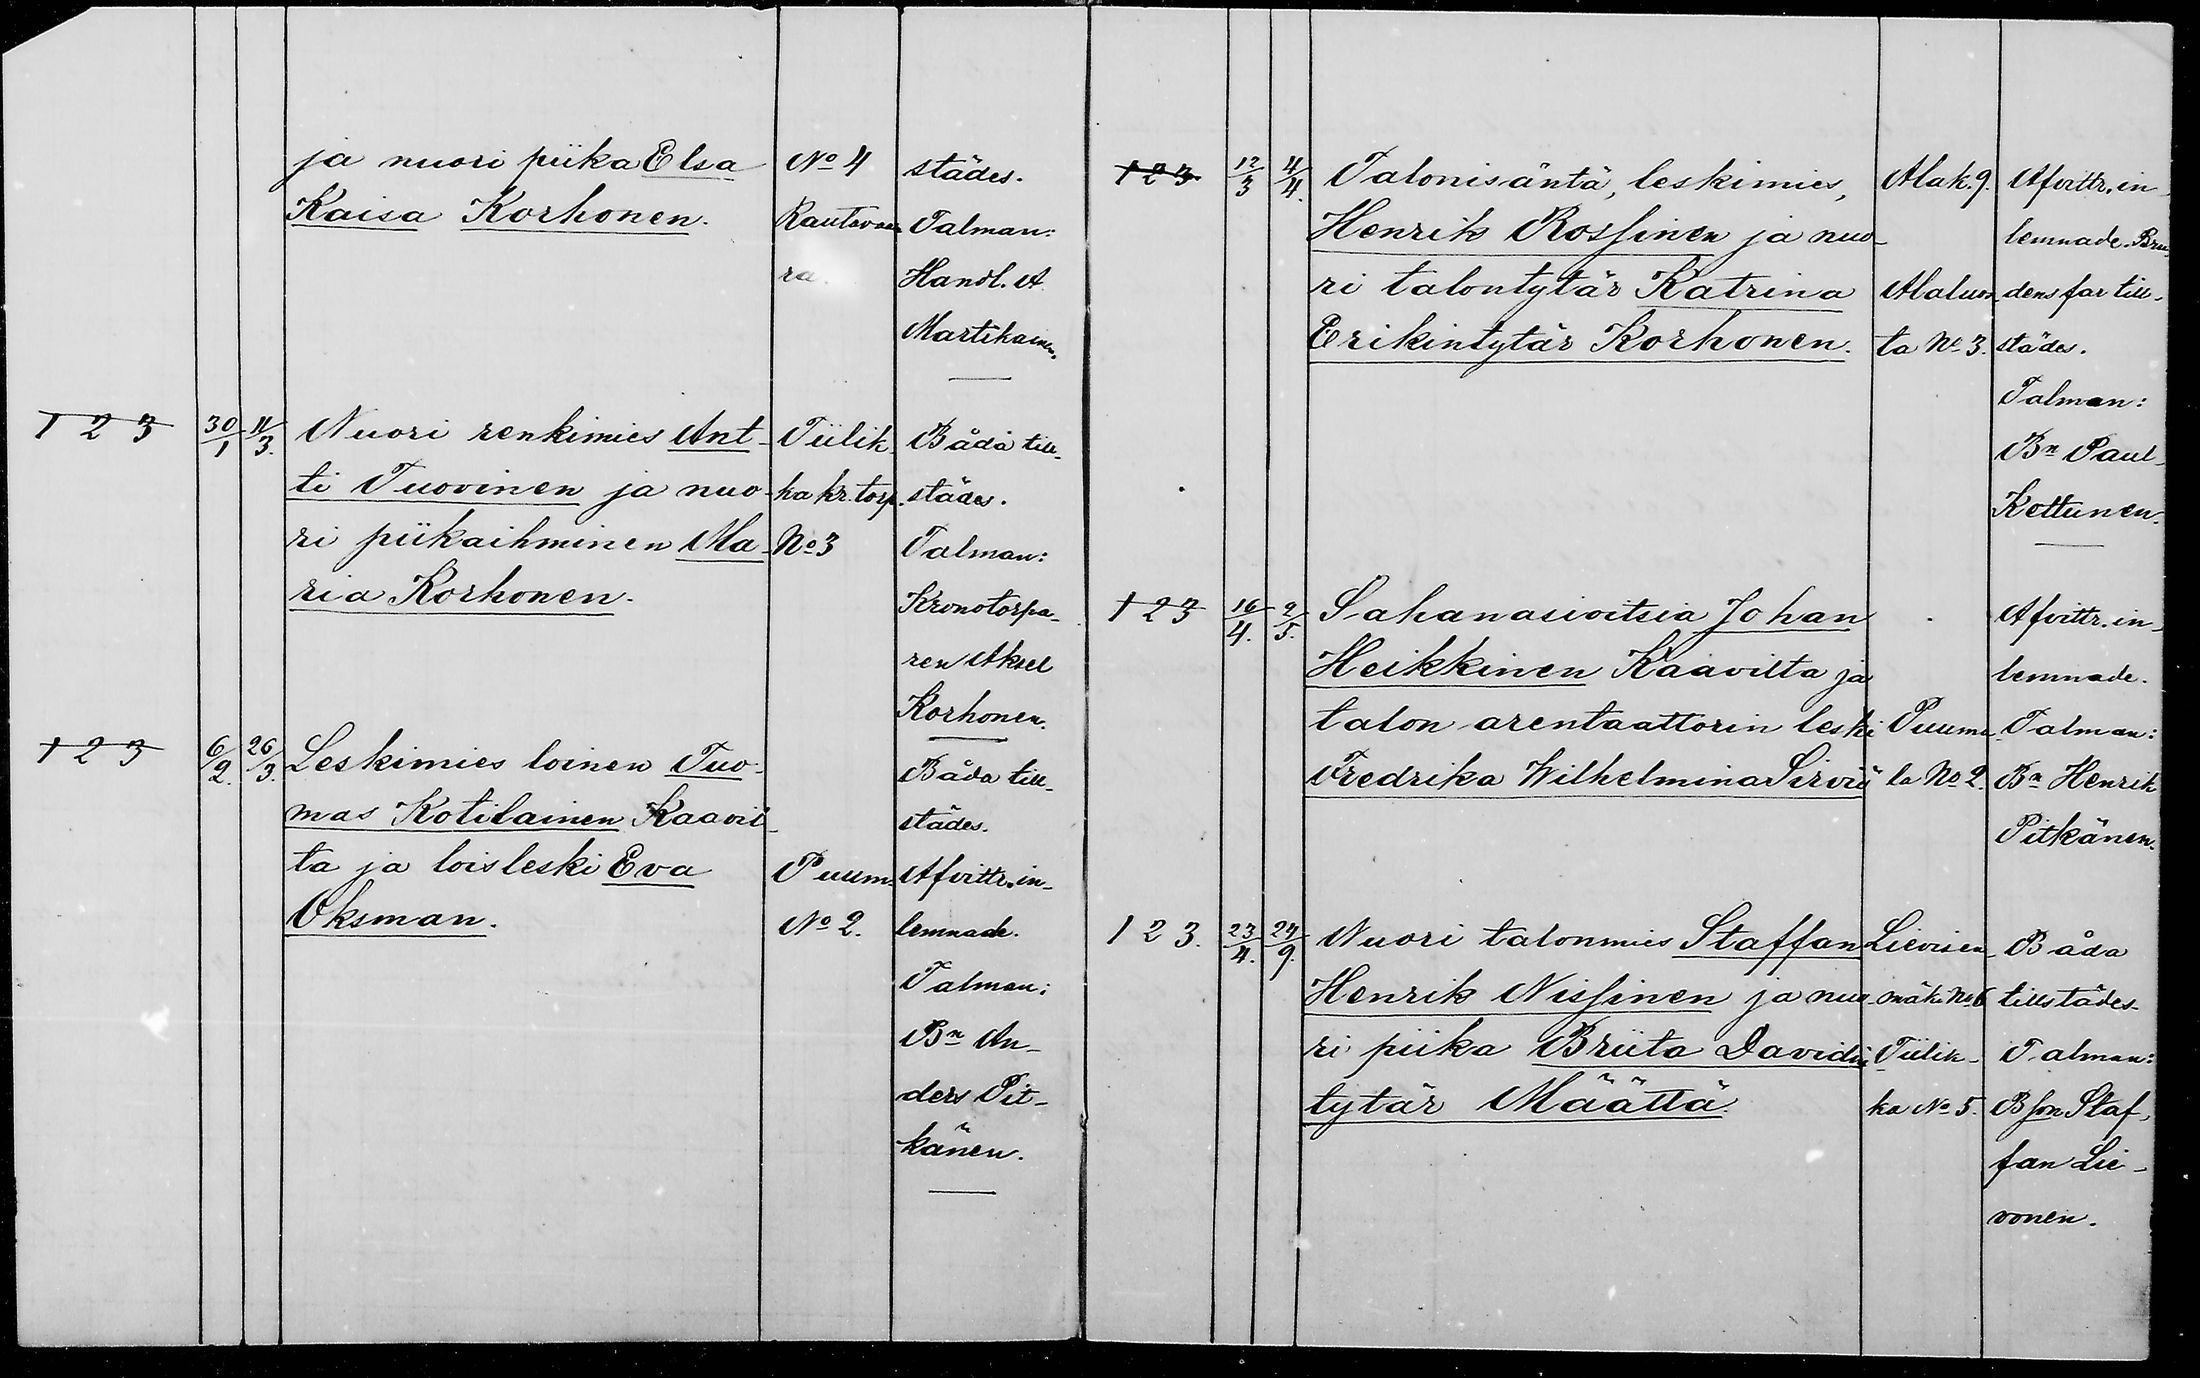 ja nuori piika Elsa
Kaisa Korhonen.
No 4
Rautavaa-
ra.
städes.
Talman:
Handl. A.
Martikainen.
1 2 3
30/1
11/3.
Nuori renkimies Ant-
ti Tuovinen ja nuo-
ri piikaihminen Ma-
ria Korhonen.
Tiilik-
ka kr. torp.
No 3
Båda till-
städes.
Talman:
Kronotorpa-
ren Aksel
Korhonen.
1 2 3
6/2.
26/3.
Leskimies loinen Tuo-
mas Kotilainen Kaavil-
ta ja loisleski Eva
Oksman.
Puum.
No 2.
Båda till-
städes.
Afvittr. in-
lemnade.
Talman:
Bn An-
ders Pit-
känen.
1 2 3
12/3
4/4.
Talonisäntä, leskimies,
Henrik Rossinen ja nuo-
ri talontytär Katrina
Erikintytär Korhonen.
Alak. 9.
Alaluos-
ta No 3.
Afvittr. in-
lemnade. Bru-
dens far till-
städes.
Talman:
Bn Paul
Kettunen.
1 2 3
16/4.
2/5.
Sahanasioitsia Johan
Heikkinen Kaavilta ja
talon arentaattorin leski
Fredrika Wilhelmina Sirviö
Puuma-
la No 2.
Afvittr. in-
lemnade.
Talman:
Bn Henrik
Pitkänen.
1 2 3.
23/4.
24/9.
Nuori talonmies Staffan
Henrik Nissinen ja nuo-
ri piika Briita Davidin
tytär Määttä.
Lievisen
mäki No 6
Tiilik-
ka No 5.
Båda
tillstädes.
Talman:
Bson Staf-
fan Lie-
vonen.